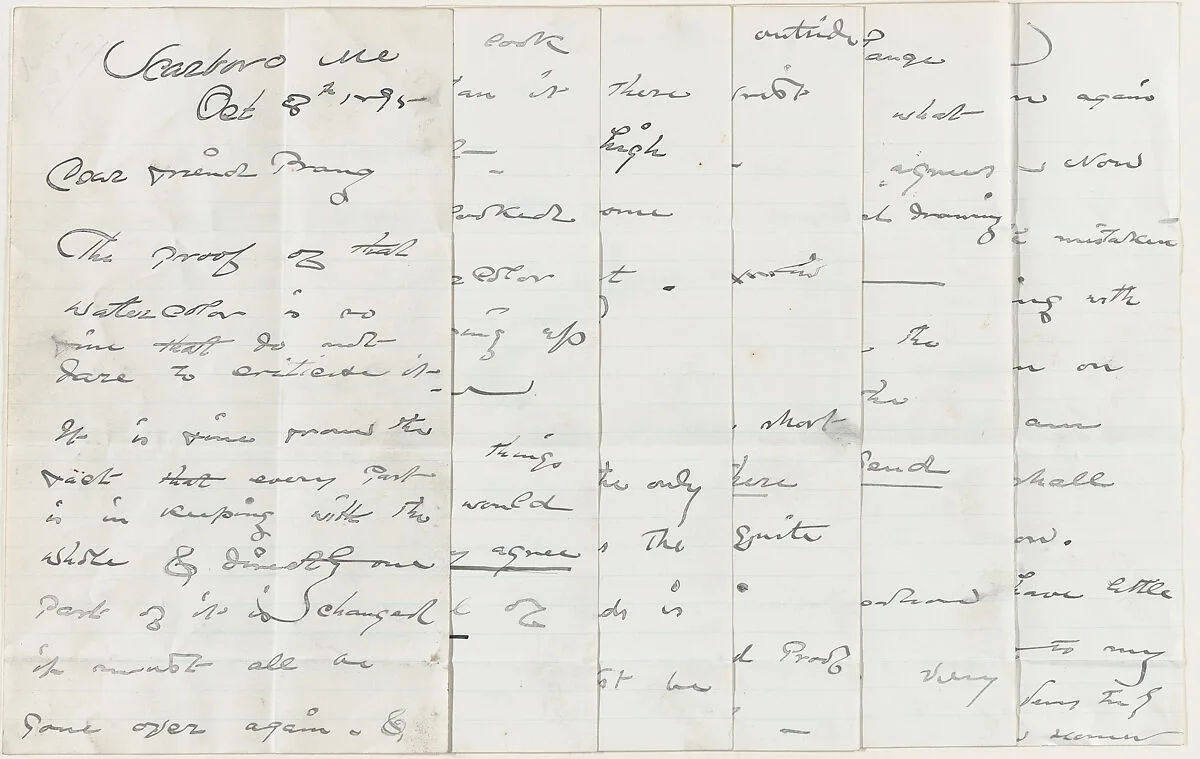 Scarboro Me
Oct 8th 1895
Dear friend Prang
The proof of that
water color is so
fine that do not
dare to criticise it -
It is fine from the
fact that every Part
is in keeping with the
whole & directly one
Part of it is changed
it must all be
gone over again. &
look
an it
looked
color
ing up
things
would
agree
of
there
high
ome
t .
the only
s the
ds is
st be
outside
short
here
Quite
d Proof
what
agrees
at drawing
, the
the
Send
very
again
Now
mistaken
ing with
n on
am
shall
on.
have little
- to my
Homer